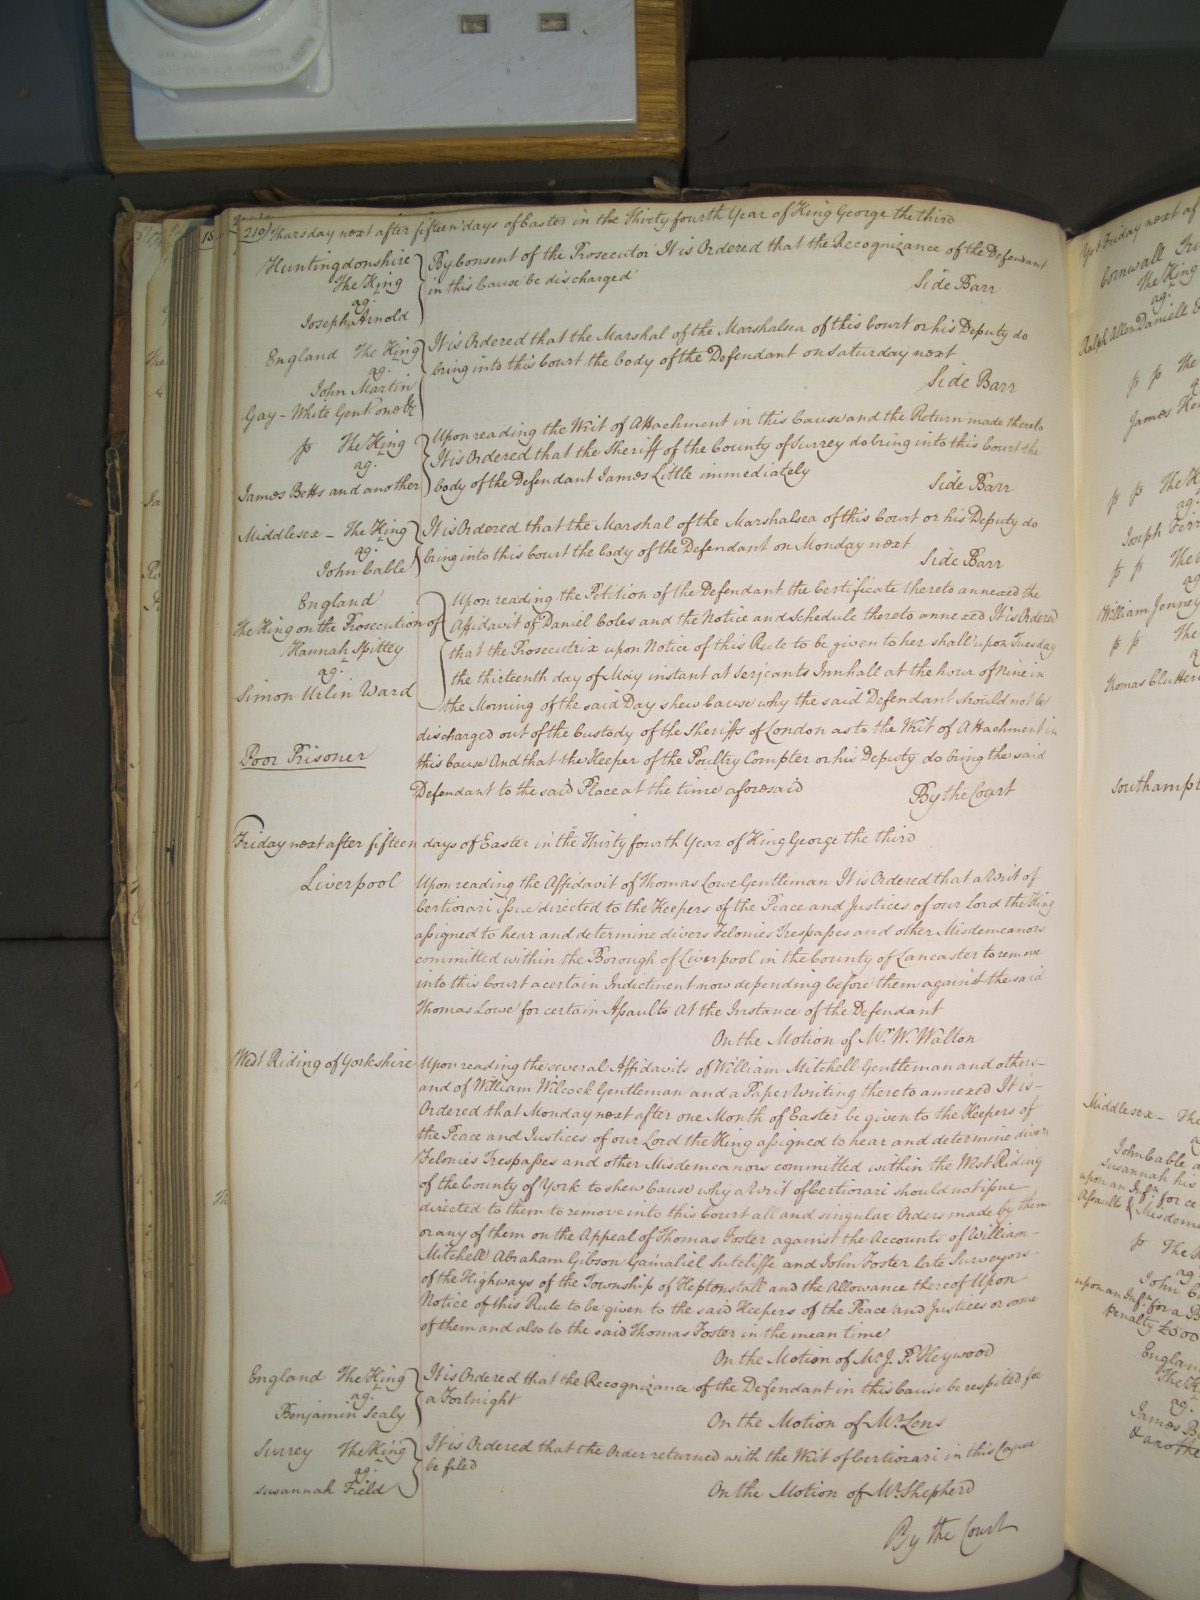 210) Thursday next after fifteen days of Easter in the Thirty fourth Year of King George the third
Huntingdonshire
The King
ag.
Joseph Arnold
By Consent of the Prosecutor It is Ordered that the Recognizance of the Defendant
in this Cause be discharged
Side Barr
England The King
ag.
John Martin
Gay - White Gent one &c
It is Ordered that the Marshal of the Marshalsea of this Court or his Deputy do
bring into this Court the body of the Defendant on Saturday next
Side Barr
The King
ag.
James Betts and another
Upon reading the Writ of Attachment in this Cause and the Return made thereto
It is Ordered that the Sheriff of the County of Surrey do bring into this Court the
body of the Defendant James Little immediately
Side Barr
Middlesex - The King
ag.
John Cable
It is Ordered that the Marshal of the Marshalsea of this Court or his Deputy do
bring into this Court the body of the Defendant on Monday next
Side Barr
England
The King on the Prosecution of
Hannah Spittey
ag.
Simon Urlin Ward
Poor Prisoner
Upon reading the Petition of the Defendant the Certificate thereto annexed the
Affidavit of Daniel Coles and the Notice and Schedule thereto annexed It is Ordered
that the Prosecutrix upon Notice of this Rule to be given to her shall upon Tuesday
the thirteenth day of May instant at Serjeants Innhall at the hour of Nine in
the Morning of the said Day shew Cause why the said Defendant should not be
discharged out of the Custody of the Sheriffs of London as to the Writ of Attachment in
this Cause And that the Keeper of the Poultry Compter or his Deputy do bring the said
Defendant to the said Place at the time aforesaid
By the Court
Friday next after fifteen days of Easter in the Thirty fourth Year of King George the third
Liverpool
Upon reading the Affidavit of Thomas Lowe Gentleman It is Ordered that a Writ of
Certiorari issue directed to the Keepers of the Peace and Justices of our Lord the King
assigned to hear and determine divers Felonies Trespasses and other Misdemeanors
committed within the Borough of Liverpool in the County of Lancaster to remove
into this Court a certain Indictment now depending before them against the said
Thomas Lowe for certain Assaults At the Instance of the Defendant
On the Motion of Mr. W. Walton
West Riding of Yorkshire
Upon reading the several Affidavits of William Mitchell Gentleman and others -
and of William Wilcock Gentleman and a Paper Writing thereto annexed It is -
Ordered that Monday next after one Month of Easter be given to the Keepers of
the Peace and Justices of our Lord the King assigned to hear and determine divers
Felonies Trespasses and other Misdemeanors committed within the West Riding
of the County of York to shew Cause why a Writ of Certiorari should not issue
directed to them to remove into this Court all and singular Orders made by them
or any of them on the Appeal of Thomas Foster against the Accounts of William -
Mitchell Abraham Gibson Gamaliel Sutcliffe and John Foster late Surveyors -
of the Highways of the Township of Heptonstall and the Allowance thereof Upon
Notice of this Rule to be given to the said Keepers of the Peace and Justices or some
of them and also to the said Thomas Foster in the mean time
On the Motion of Mr. J. P. Heywood
England The King
ag.
Benjamin Sealy
It is Ordered that the Recognizance of the Defendant in this Cause be respited for
a Fortnight
On the Motion of Mr. Lens
Surrey The King
ag.
Susannah Field
It is Ordered that the Order returned with the Writ of Certiorari in this Cause
be filed
On the Motion of Mr. Shepherd
By the Court
Friday next af
Cornwall
The King
ag.
Ralph Allen Daniell &
The
James
The K
ag.
Joseph
The
ag.
William Jenney
The
Thomas
Southampt
Middlesex - The
John Cable a
Susannah his
upon an Infn. for ce
Assaults & Misdeme
The
ag.
John
upon an Infn. for a
Penalty £500
England
The K
ag.
James B
& anothe